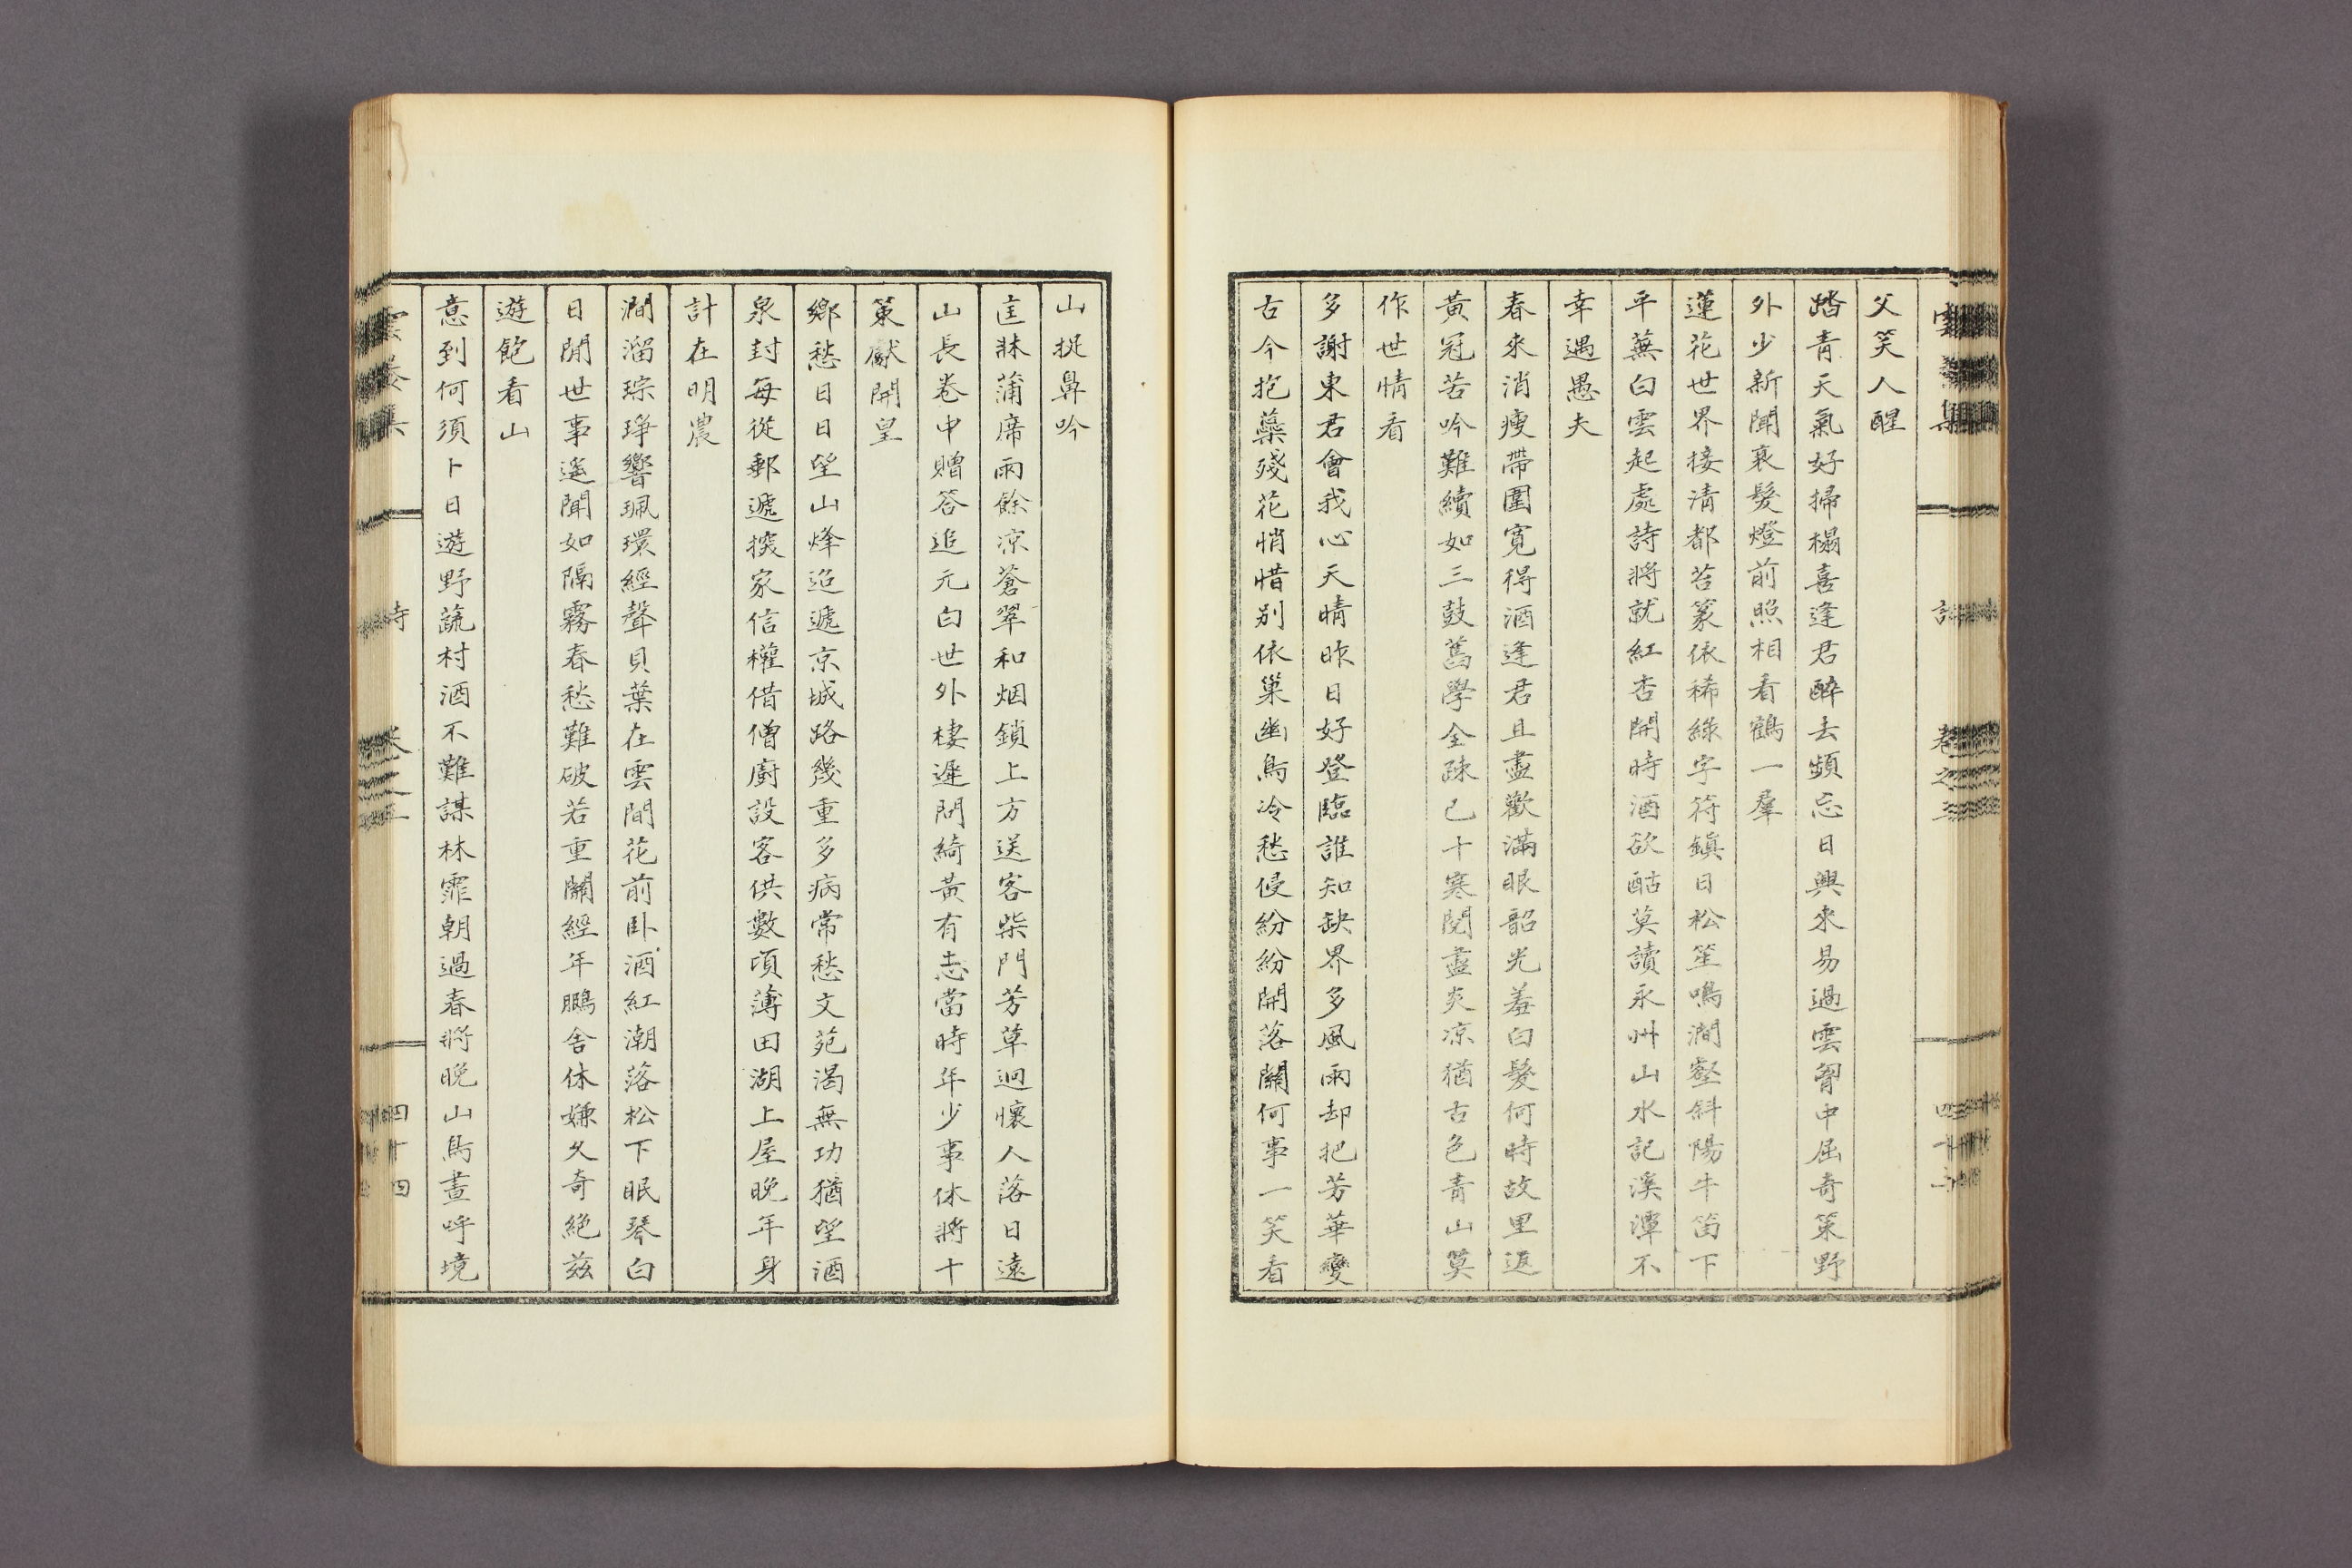 父笑人醒
踏青天氣好掃榻喜逢君醉去頻忘日興來易過雲胷中屈奇策野
外少新聞衰髮燈前照相看鶴一羣
蓮花世界接淸都苔篆依稀綠字符鎭日松笙鳴澗壑斜陽牛笛下
平蕪白雲起處詩將就紅杏開時酒欲酤莫讀永州山水記溪潭不
幸遇愚夫
春來消瘦帶圍寬得酒逢君且盡歡滿眼韶光羞白髮何時故里返
黃冠苦吟難續如三鼓舊學全疎已十寒閱盡炎凉猶古色靑山莫
作世情看
多謝東君會我心天晴昨日好登臨誰知缺界多風雨却把芳華變
古今抱蘂殘花悄惜别依巢幽鳥冷愁侵紛紛開落關何事一笑看
山捉鼻吟
匡牀蒲席雨餘凉蒼翠和烟鎖上方送客柴門芳草逈懷人落日遠
山長卷中贈答追元白世外棲遲問綺黃有志當時年少事休將十
策獻開皇
鄕愁日日望山烽迢遞京城路幾重多病常愁文苑渴無功猶望酒
泉封每從郵遞探家信權借僧廚設客供數頃薄田湖上屋晚年身
計在明農
澗溜琮琤響珮環經聲貝葉在雲間花前卧酒紅潮落松下眠琴白
日閒世事遙聞如隔霧春愁難破若重關經年鵬舍休嫌久奇絕茲
遊飽看山
意到何須卜日遊野蔬村酒不難謀林霏朝過春將晚山鳥晝呼境
集
詩
卷之三
時
四十四